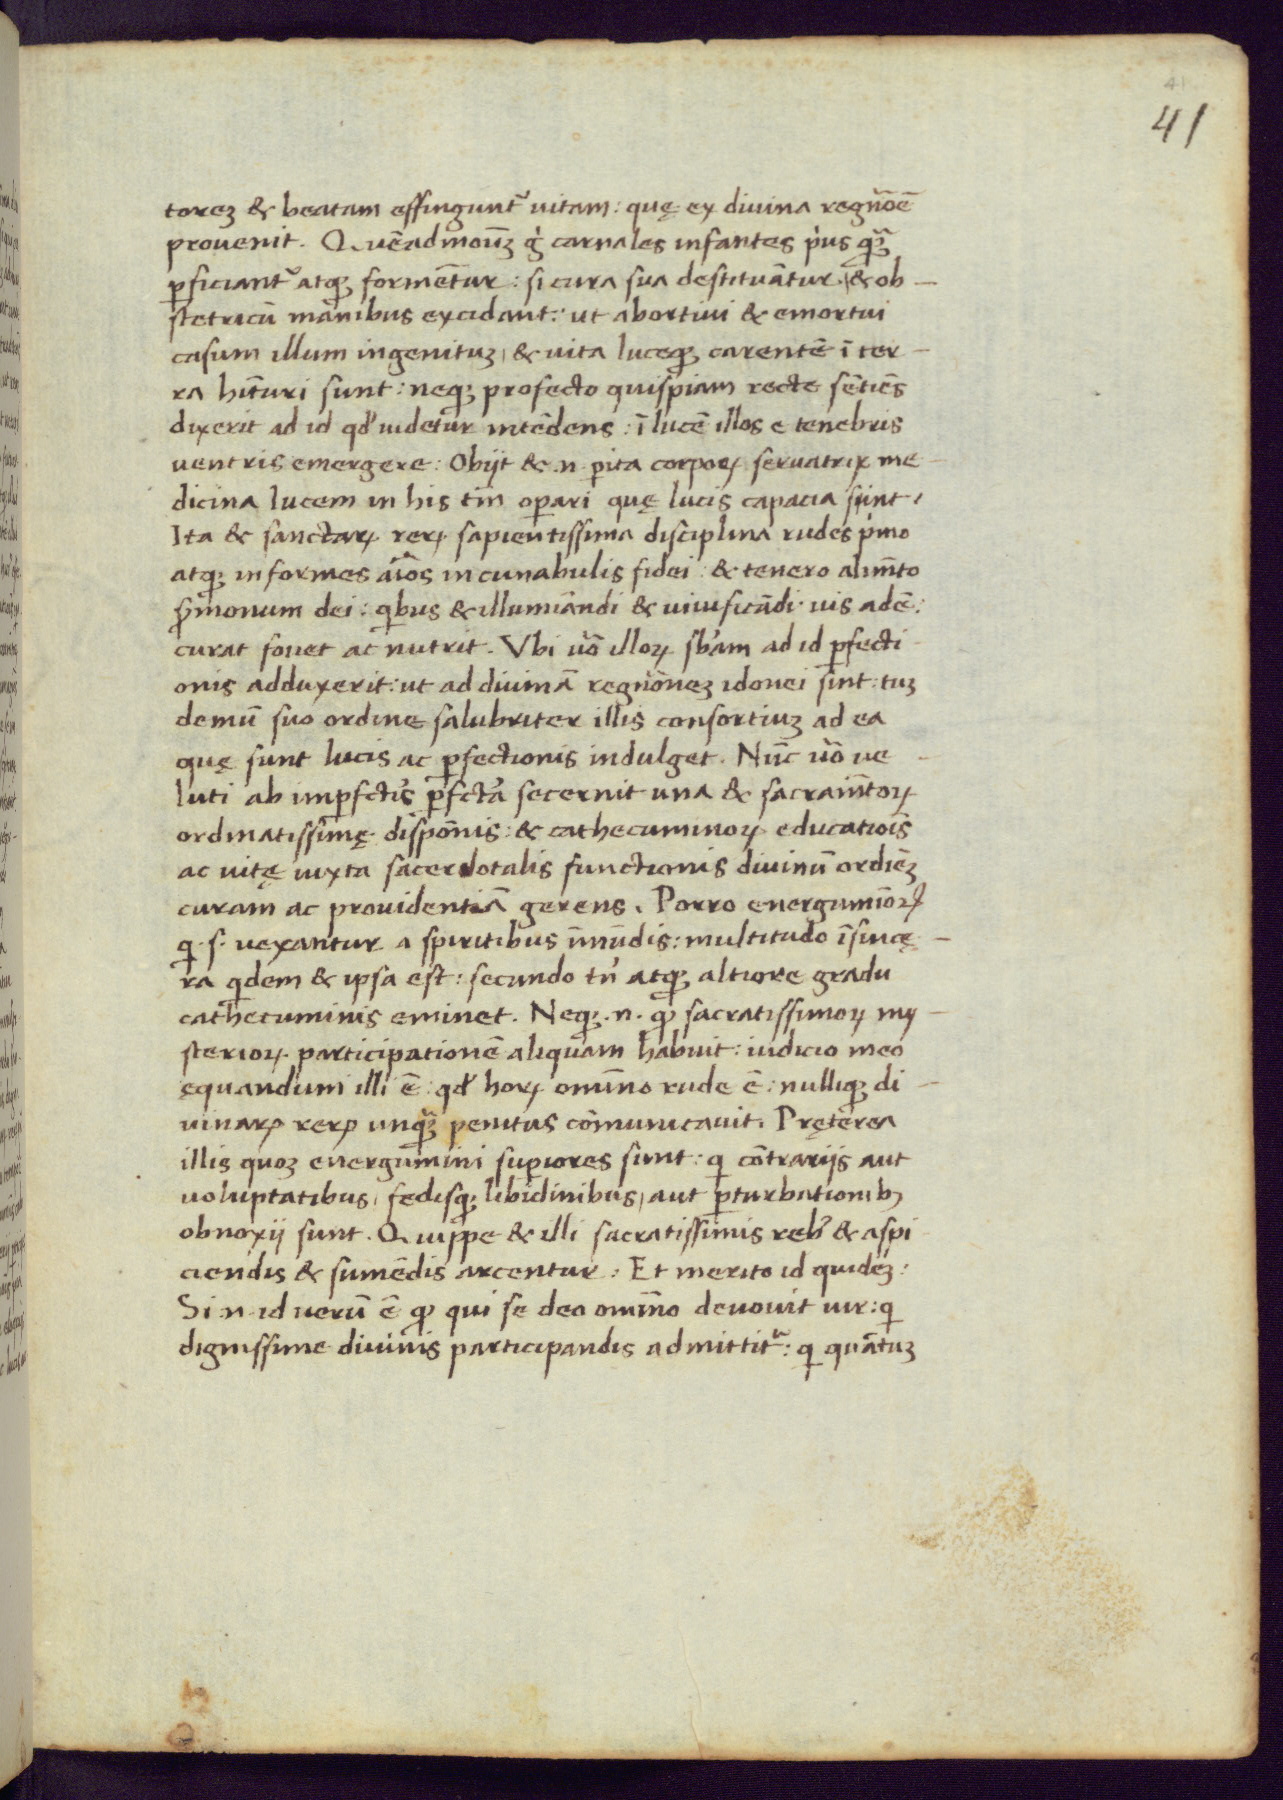 41
41
torez & beatam effingunt᷑ uitam: quę ex diuina regn̄oē
prouenit. Quēadmoūz g̍ carnales infantes p̍us qᷓz
ꝑficiant᷑ atqꝫ formēt̄ur: si cura sua destituāntur, & ob-
stetricū manibus excidant: ut abortiui & emortui
casum illum ingenituz, & uita luceqꝫ carentē ī ter-
ra hīturi sunt: neqꝫ profecto quispiam recte sētiēs
dixerit ad id qđ uidetur intēdens: ī lucē illos e tenebris
uentris emergere: Obijt & .n. ꝑita corpoꝝ seruatrix me-
dicina lucem in his tm̄ oꝑari quę lucis capacia sunt.
Ita & sanctaꝝ reꝝ sapientissima disciplina rudes p̍mo
atqꝫ informes aīos incunabulis fidei: & tenero alim̄to
ẜmonum dei: qͥbus & illumiandi & uiuificādi uis adē:
curat fouet ac nutrit. Vbi ūo illoꝝ sƀam ad id ꝑfecti-
onis adduxerit: ut ad diuinā regn̄onez idonei sint: tuz
demū suo ordine salubriter illis consortiuz ad ea
quę sunt lucis ac ꝑfectionis indulget. Nūc ūo ue-
luti ab imꝑfctis ꝑfcta secernit una & sacram̄toꝝ
ordinatissimę dispōnis: & cathecuminoꝝ educatiois
ac uitę iuxta sacerdotalis functionis diuinū ordiēz
curam ac prouidentiā gerens. Porro energumīoꝝ
qͥ .s. uexantur a spiritibus īmūdis: multitudo īsincę-
ra qͥdem & ipsa est: secundo tn̄ atqꝫ altiore gradu
cathecuminis eminet. Neqꝫ .n. ꝙ sacratissimoꝝ my-
sterioꝝ participationē aliquam habuit: iudicio meo
ęquandum illi ē: qđ hoꝝ omīno rude ē: nulliqꝫ di-
uinaꝝ reꝝ unqᷓz penitus cōmunicauit. Pręterea
illis quoz energumini suꝑiores sunt: qͥ contrarijs aut
uoluptatibus, fedisqꝫ libidinibus, aut ꝑturbationibꝫ
obnoxij sunt. Quippe & illi sacratissimis reb᷒ & aspi-
ciendis & sumēdis arcentur: Et merito id quidēz:
Si .n. id uerū ē ꝙ qui se deo omīno deuouit uir: qͥ
dignissime diuinis participandis admittit᷑: qͥ quātuz